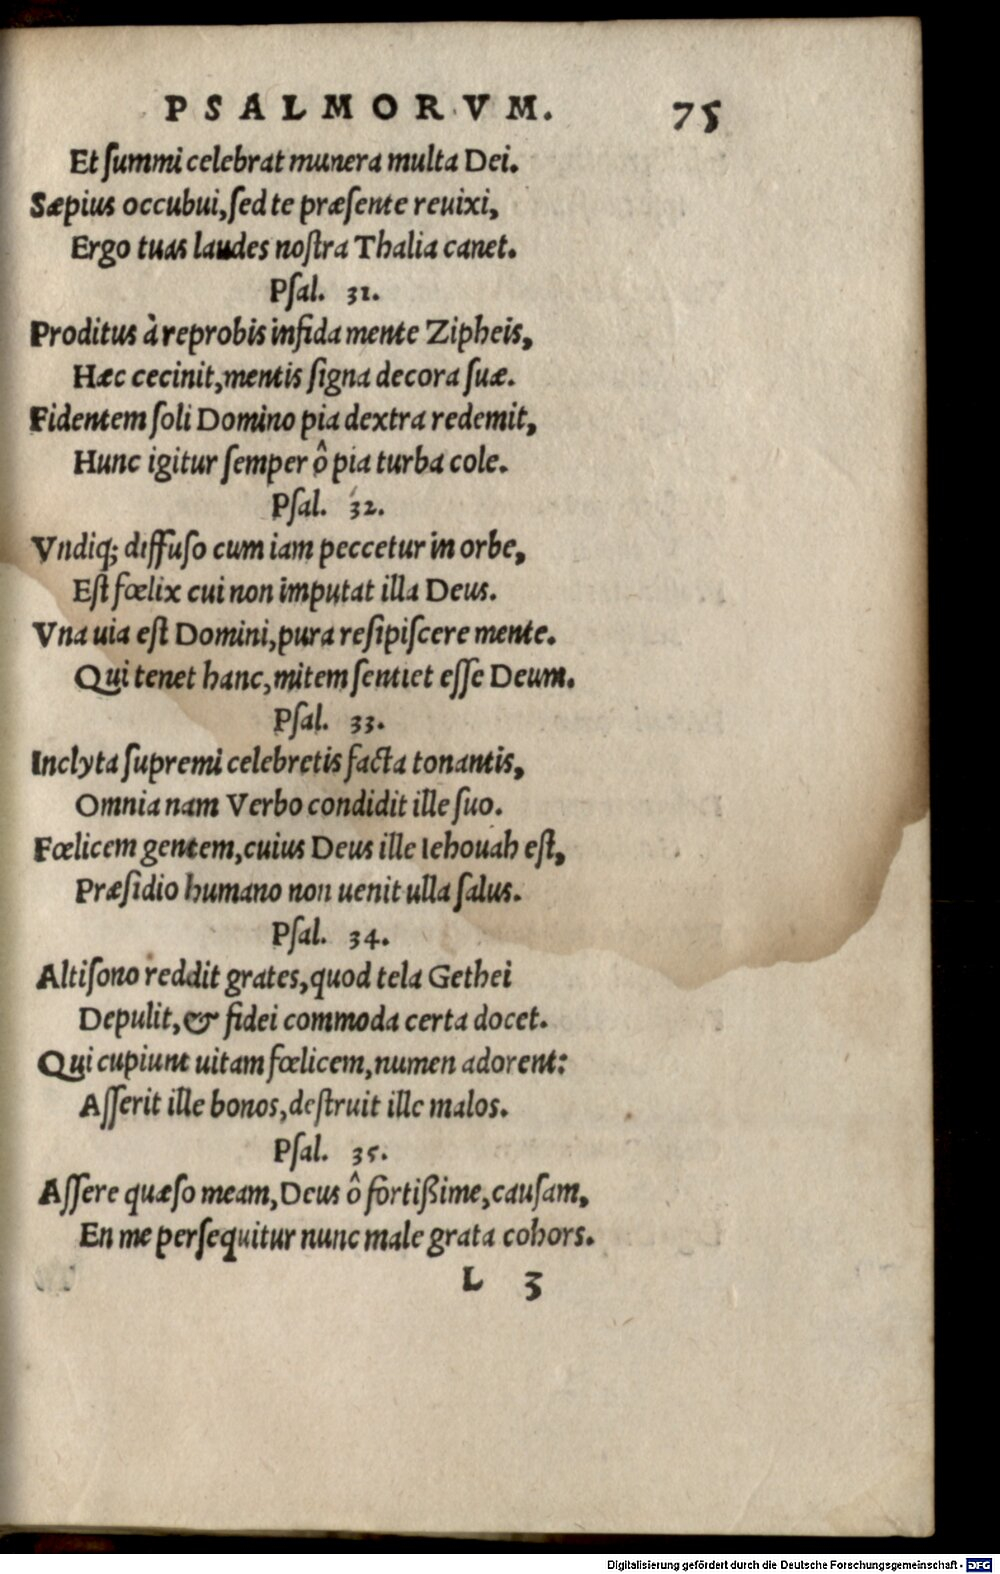 PSALMORVM. 75
Et ſummi celebrat munera multa Dei.
Sæpius occubui, ſed te præſente reuixi,
Ergo tuas laudes noſtra Thalia canet.
Pſal. 31.
Proditus à reprobis infida mente Zipheis,
Hæc cecinit, mentis ſigna decora ſuæ.
Fidentem ſoli Domino pia dextra redemit,
Hunc igitur ſemper ô pia turba cole.
Pſal. 32.
Vndiq; diffuſo cum iam peccetur in orbe,
Eſt fœlix cui non imputat illa Deus.
Vna uia eſt Domini, pura reſipiſcere mente.
Qui tenet hanc, mitem ſentiet eſſe Deum.
Pſal. 33.
Inclyta ſupremi celebretis facta tonantis,
Omnia nam Verbo condidit ille ſuo.
Fœlicem gentem, cuius Deus ille Iehouah eſt,
Præſidio humano non uenit ulla ſalus.
Pſal. 34.
Altiſono reddit grates, quod tela Gethei
Depulit, & fidei commoda certa docet.
Qui cupiunt uitam fœlicem, numen adorent:
Aſſerit ille bonos, deſtruit ille malos.
Pſal. 35.
Aſſere quæſo meam, Deus ô fortißime, cauſam,
En me perſequitur nunc male grata cohors.
L 3
Digitalisierung gefördert durch die Deutsche Forschungsgemeinschaft - DFG